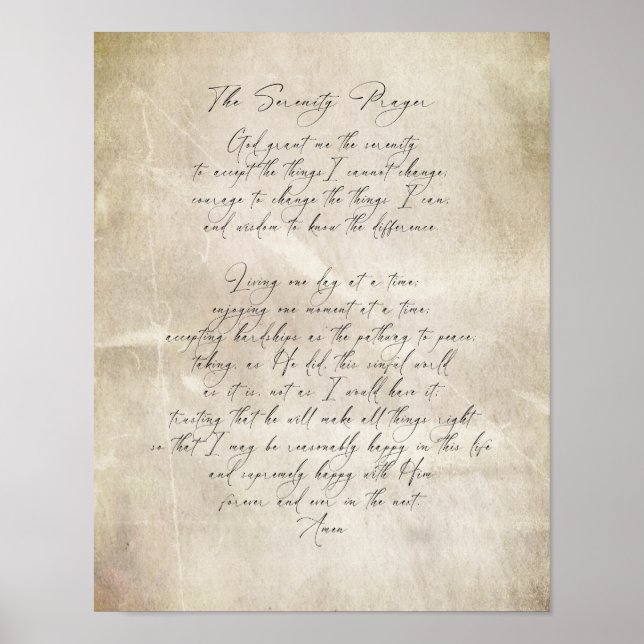 The Serenity Prayer
God grant me the serenity
to accept the things I cannot change;
courage to change the things I can;
and wisdom to know the difference.
Living one day at a time;
enjoying one moment at a time;
accepting hardships as the pathway to peace;
taking, as He did, this sinful world
as it is, not as I would have it;
trusting that he will make all things right
so that I may be reasonably happy in this life
and supremely happy with Him
forever and ever in the next.
Amen